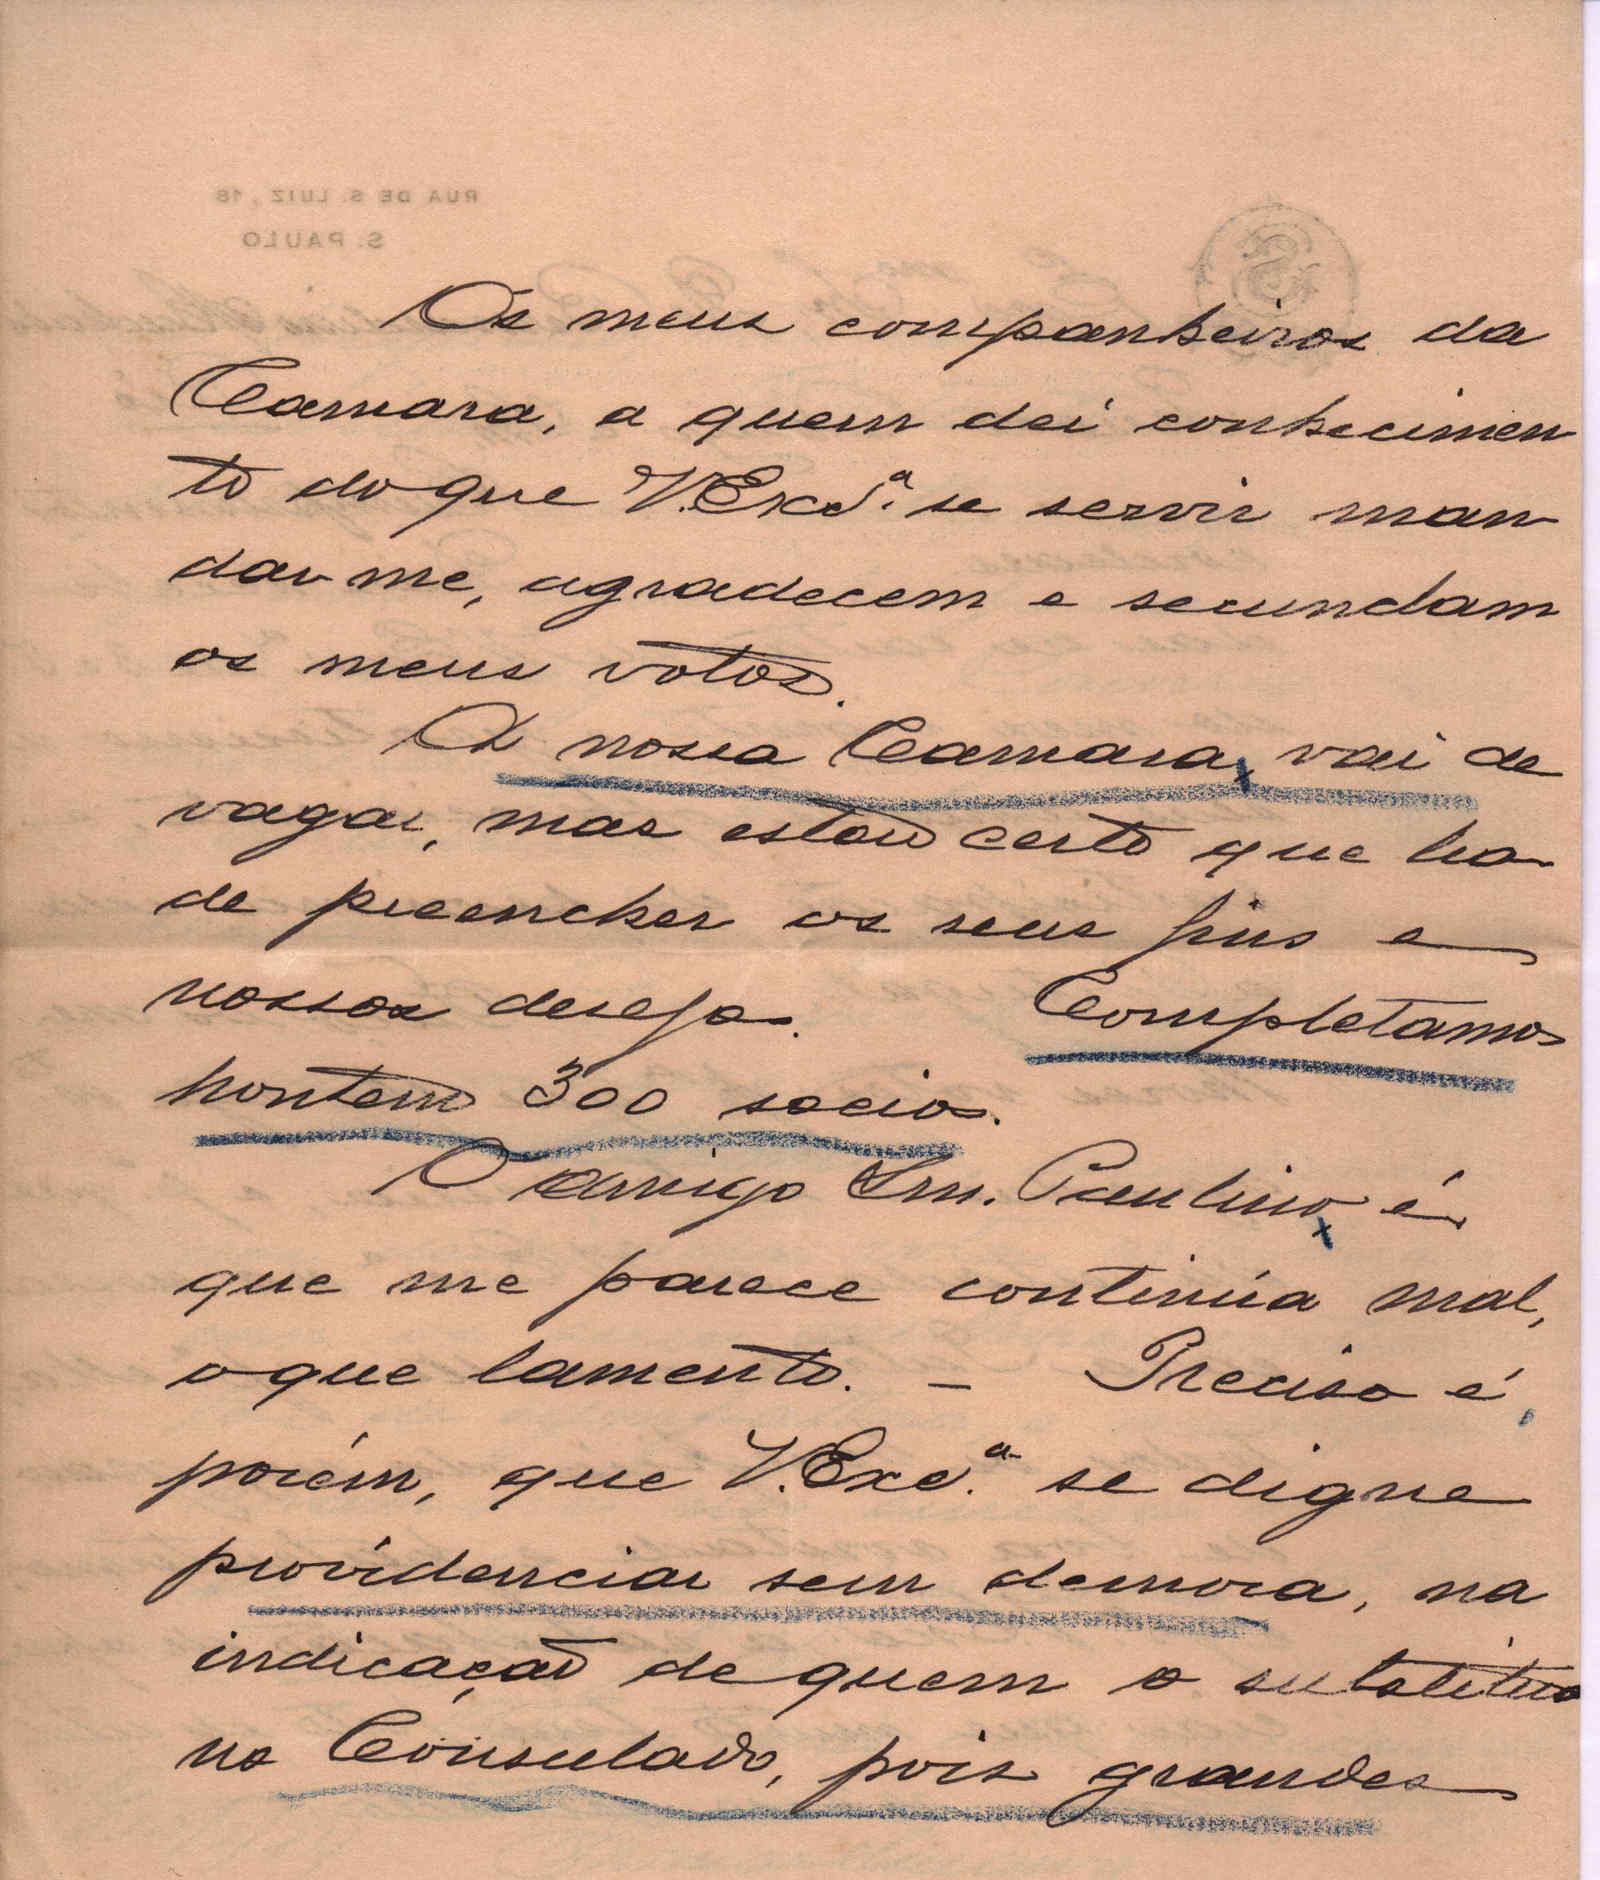 RUA DE S. LUIZ, 18
S. PAULO
Os meus companheiros da
Camara, a quem dei conhecimen
to do que V. Exc.ª se servir man
dar-me, agradecem e secundam
os meus votos.
A nossa Camara, vai de
vagar, mas estou certo que ha
de preencher os seus fins e
nossos desejos. Completamos
hontem 300 socios.
O amigo Snr. Paulino é
que me parece continúa mal,
o que lamento. — Preciso é,
porém, que V. Exc.ª se digne
providenciar sem demora, na
indicação de quem o substitua
no Consulado, pois grandes